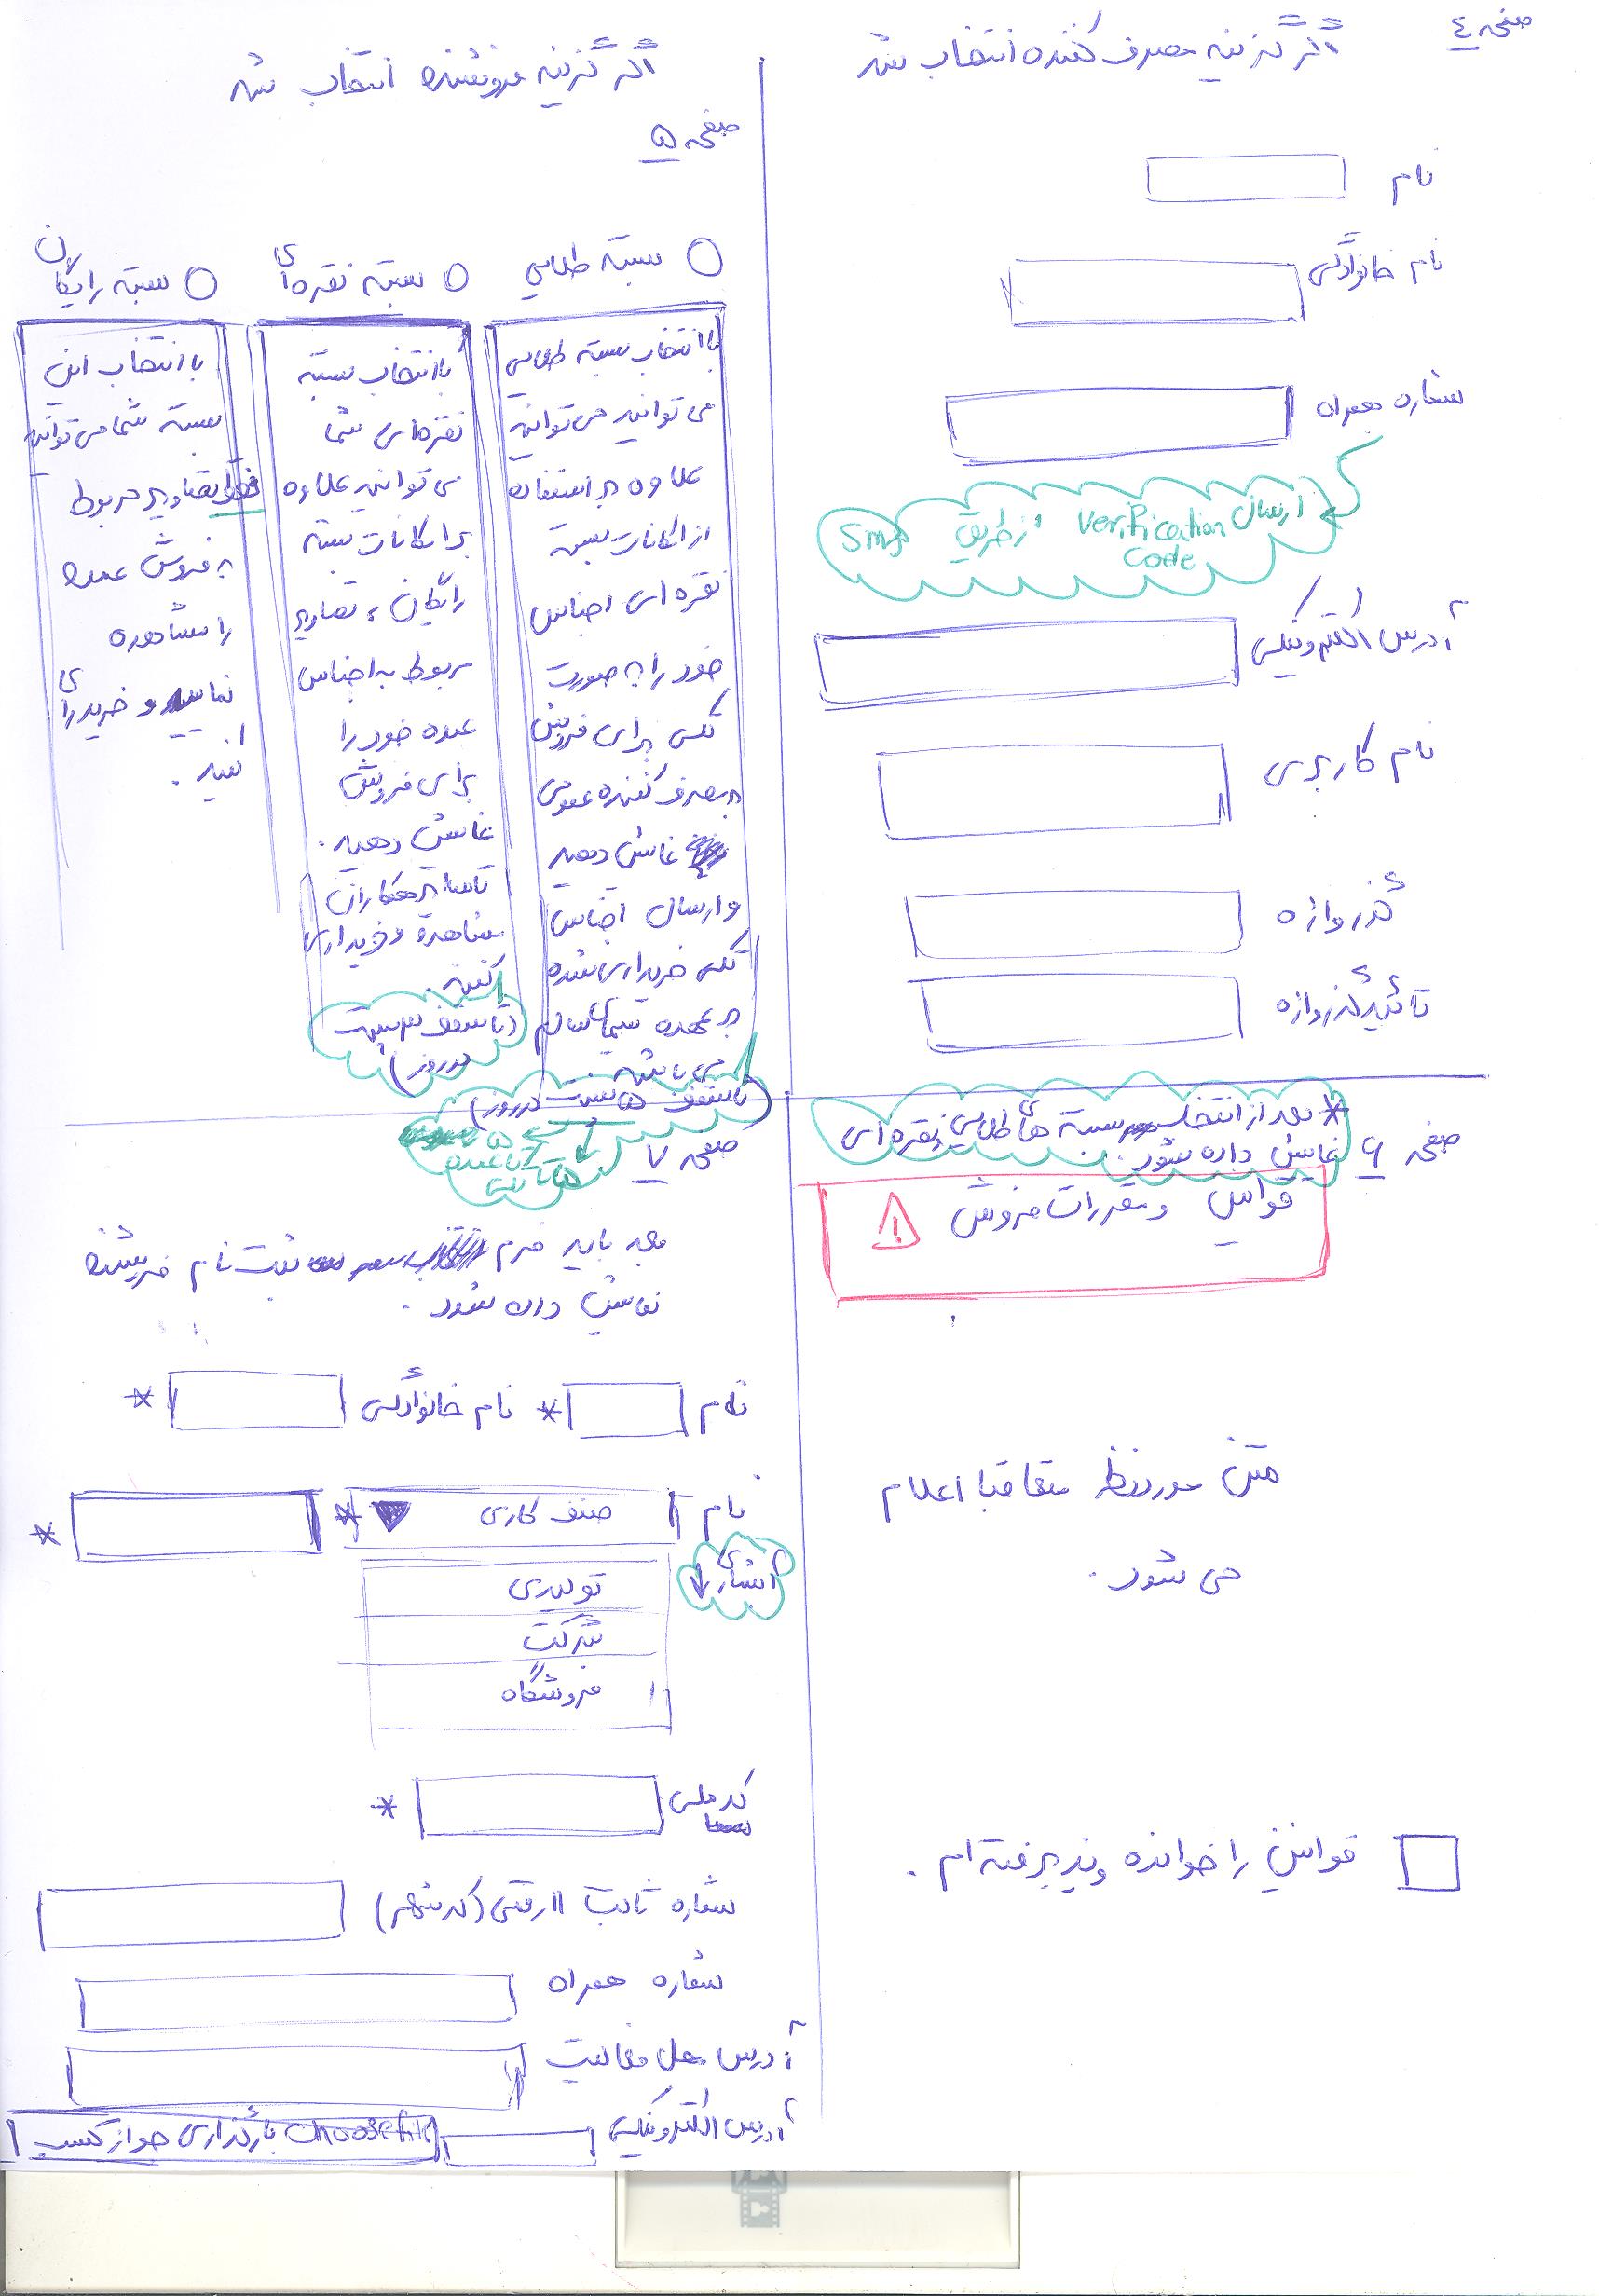 صفحه ٤
اگر گزینه مصرف کننده انتخاب شد
نام
نام خانوادگی
شماره همراه
ارسال Verification Code از طریق Sms
آدرس الکترونیکی
نام کاربری
گذرواژه
تائید گذرواژه
اگر گزینه فروشنده انتخاب شد
صفحه ۵
بسته طلایی
با انتخاب بسته طلایی
می توانید می توانید
علاوه بر استفاده
از امکانات بسته
نقره ای اجناس
خود را به صورت
تکی برای فروش
به مصرف کننده عمومی
نمایش دهید
و ارسال اجناس
تکی خریداری شده
بر عهده
می باشد
تا سقف ۵ پست در روز)
بسته نقره ای
با انتخاب بسته
نقره ای شما
می توانید علاوه
بر امکانات بسته
رایگان، تصاویر
مربوط به اجناس
عمده خود را
برای فروش
نمایش دهید.
تا سایر همکاران
مشاهده و خریداری
کنند.
(تا سقف ۳ پست
در روز)
بسته رایگان
با انتخاب این
بسته شما می توانید
فقط تصاویر مربوط
به فروش عمده
را مشاهده
نمایید و خریداری
کنید.
صفحه ۶
* بعد از انتخاب بسته های طلایی و نقره ای
نمایش داده شود.
قوانین و مقررات فروش
متن مورد نظر متعاقبا اعلام
می شود.
قوانین را خوانده و پذیرفته ام.
صفحه ۷
بعد باید فرم ثبت نام فروشنده
نمایش داده شود.
نام * نام خانوادگی *
نام صنف کاری * *
آبشاری
تولیدی
شرکت
فروشگاه
کد ملی *
شماره ثابت ۱۱ رقمی (کد شهر)
شماره همراه
آدرس محل فعالیت
آدرس الکترونیکی
choose file بارگذاری جواز کسب